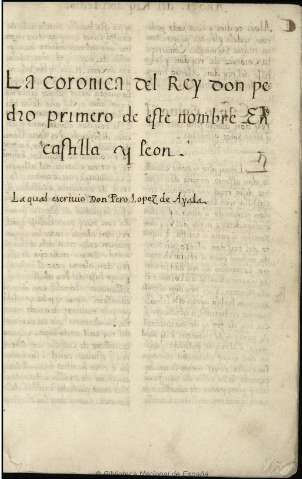 La coronica del Rey don pe
dro primero de este nombre En
castilla y leon.
La qual escriuio Don Pero Lopez de Ayala.
© Biblioteca Nacional de España